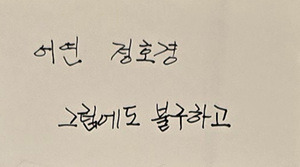 어연 정호경
그럼에도 불구하고